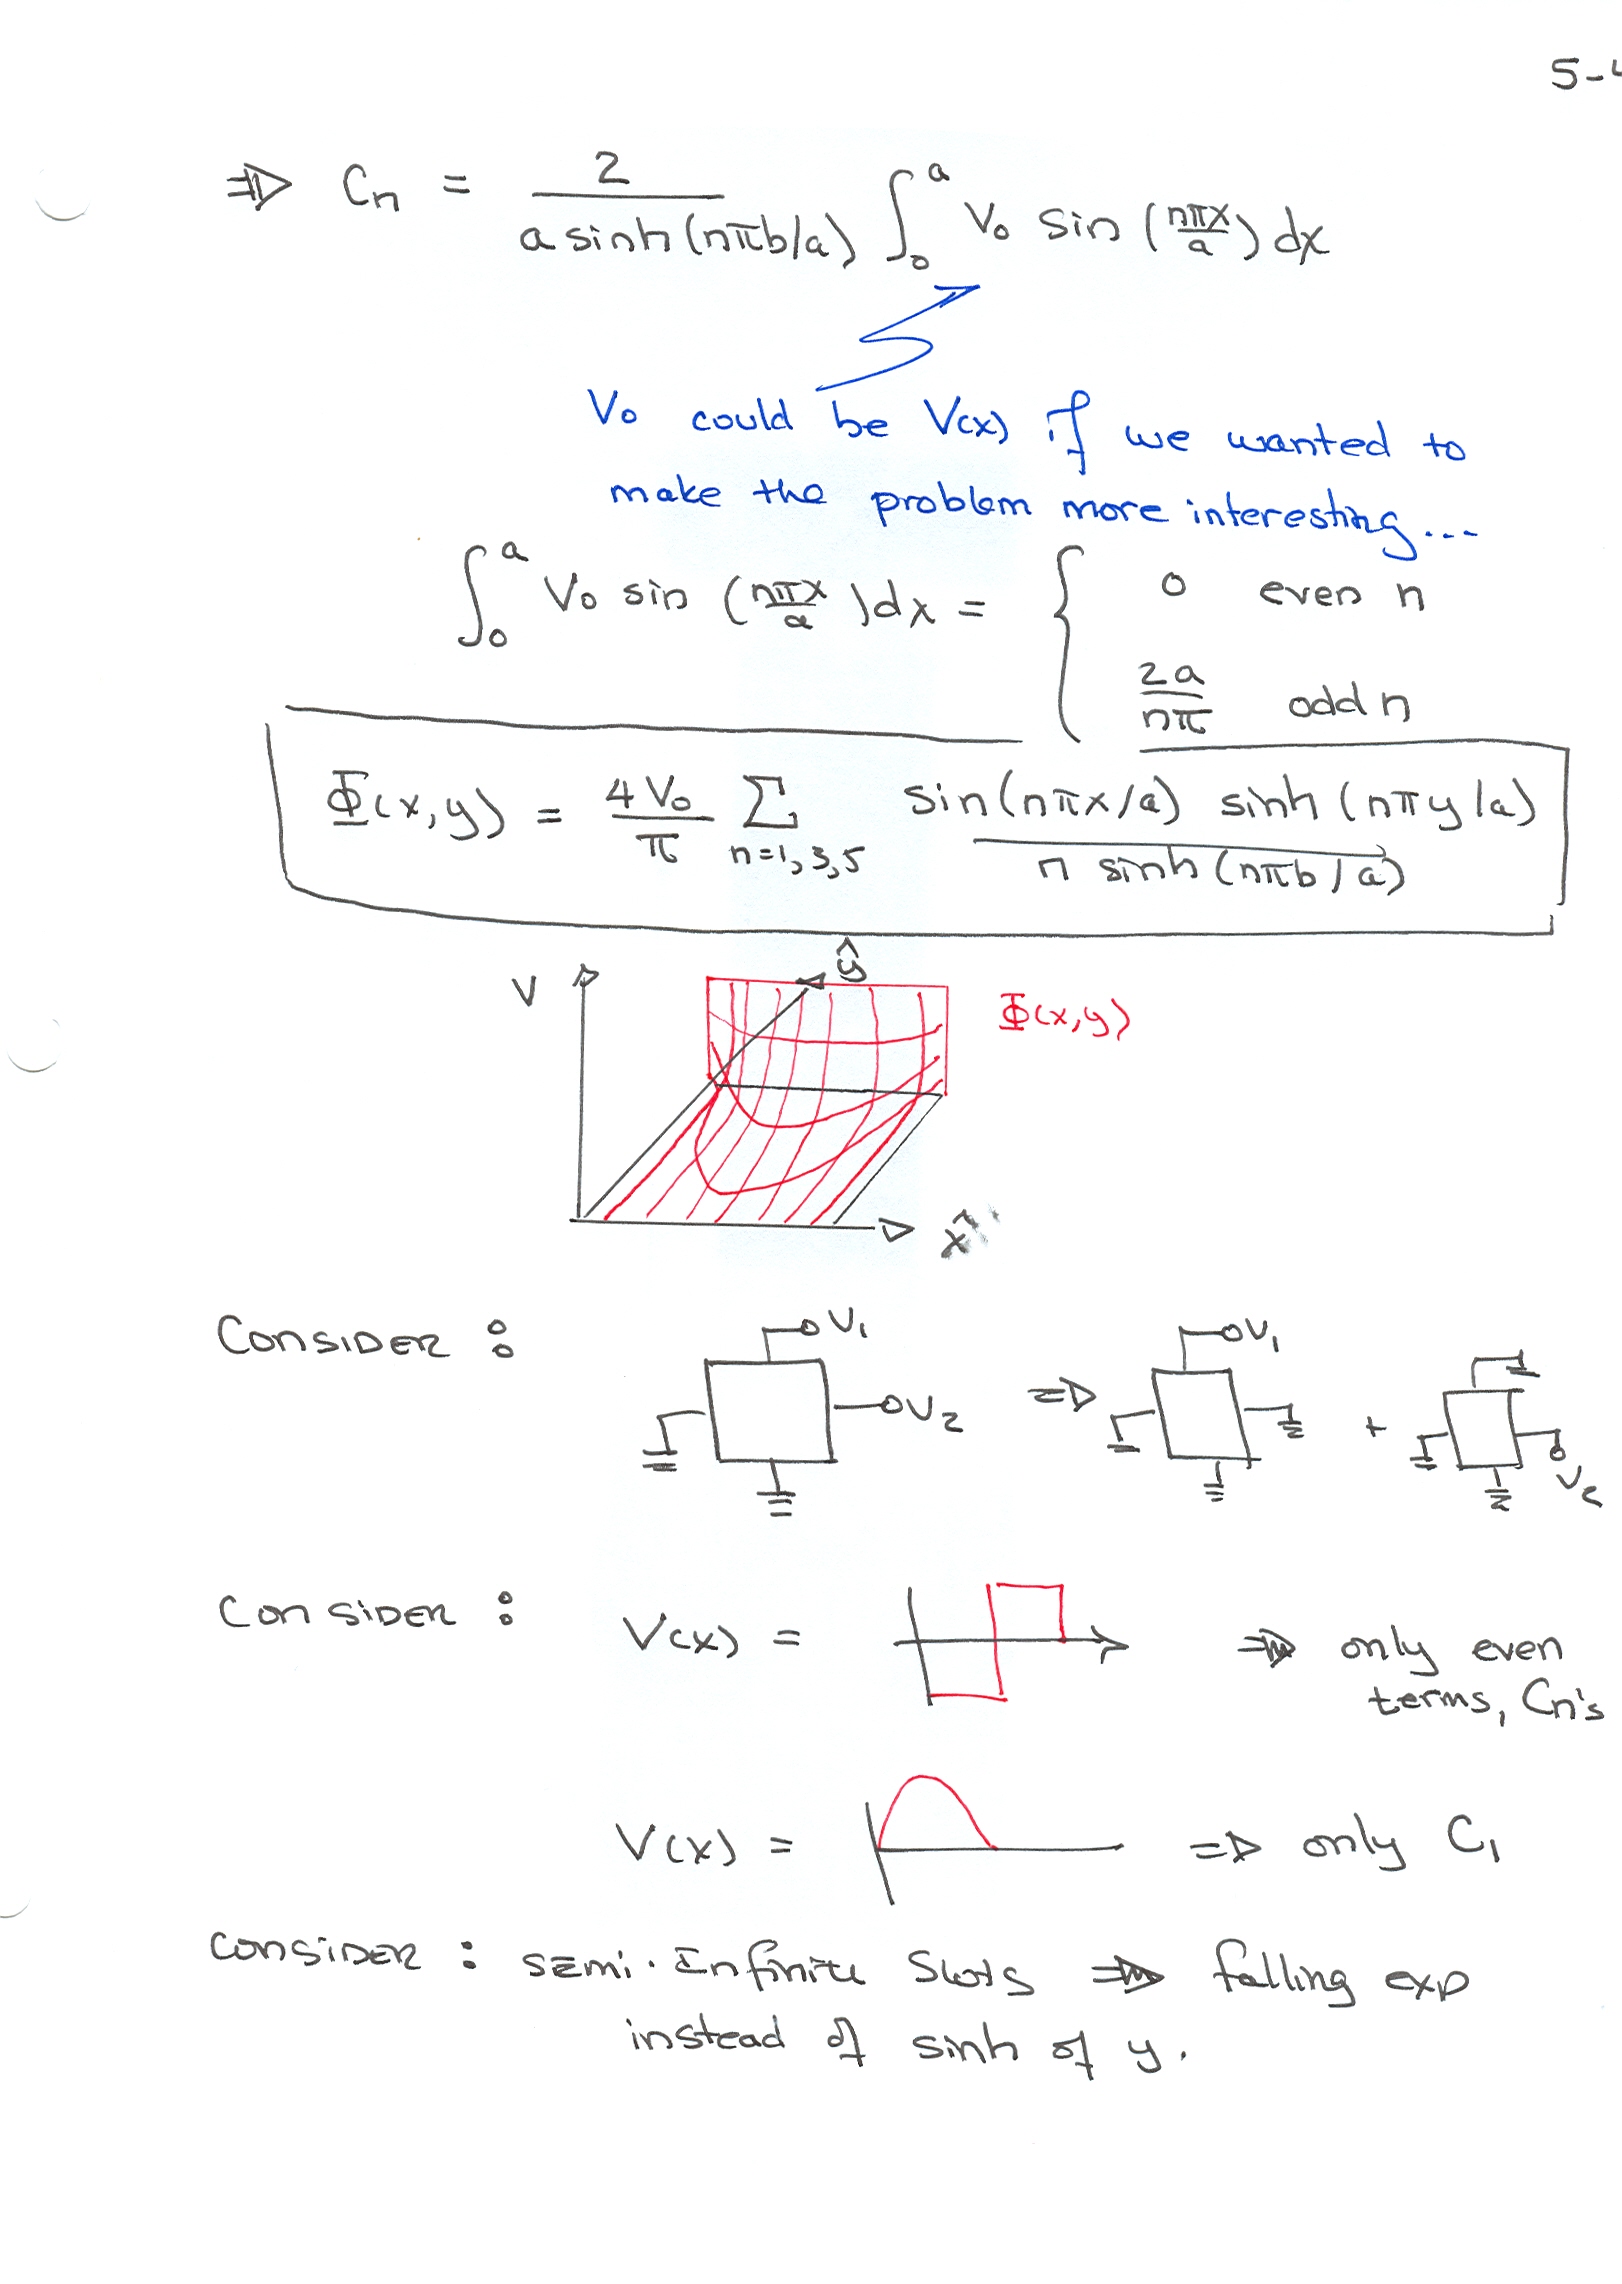 5-4
⇒ Cn = 2 / (a sinh(nπb/a)) ∫₀ᵃ V₀ sin (nπx/a) dx
V₀ could be V(x) if we wanted to
make the problem more interesting...
∫₀ᵃ V₀ sin (nπx/a)dx = { 0 even n
2a/nπ odd n
Φ(x,y) = 4V₀/π Σ n=1,3,5 sin(nπx/a) sinh(nπy/a) / n sinh(nπb/a)
V ŷ Φ(x,y)
x
CONSIDER : V₁ V₂ ⇒ V₁ + V₂
CONSIDER : V(x) = ⇒ only even
terms, Cn's
V(x) = ⇒ only C₁
CONSIDER : SEMI-Infinite Slots ⇒ falling exp
instead of sinh of y.